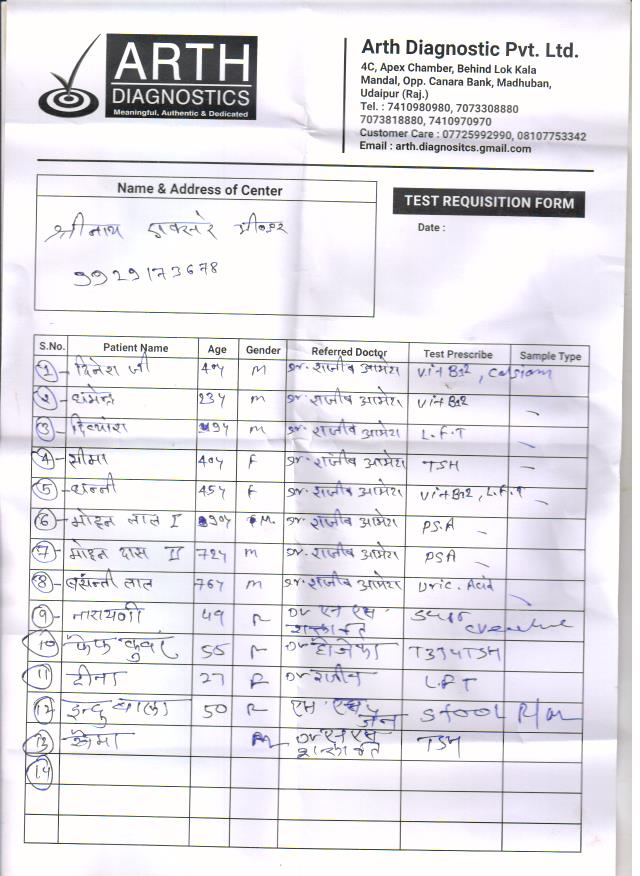 ARTH
DIAGNOSTICS
Meaningful, Authentic & Dedicated
Arth Diagnostic Pvt. Ltd.
4C, Apex Chamber, Behind Lok Kala
Mandal, Opp. Canara Bank, Madhuban,
Udaipur (Raj.)
Tel. : 7410980980, 7073308880
7073818880, 7410970970
Customer Care : 07725992990, 08107753342
Email : arth.diagnositcs.gmail.com
Name & Address of Center
TEST REQUISITION FORM
Date :
श्रीनाथ
9929173678
S.No. Patient Name Age Gender Referred Doctor Test Prescribe Sample Type
1 - दिनेश जी 40y M Dr. राजीव आमेटा Vit B12,
2 - 23y M Dr. राजीव आमेटा Vit B12
3 - दिव्यांश M Dr. राजीव आमेटा L.F.T
4 - सीमा 40y F Dr. राजीव आमेटा TSH
5 - 45y F Dr. राजीव आमेटा Vit B12, L.F.T
6 - मोहन लाल I M. Dr. राजीव आमेटा PS.A
7 - मोहन दास II 72y M Dr. राजीव आमेटा PSA
8 - बसन्ती लाल 76y M Dr. राजीव आमेटा Uric. Acid
9 - नारायणी 49 F Dr एन एस
10 कुवर 55 F Dr T3T4TSH
11 टीना 27 F Dr राजीव L.F.T
12 इन्दु बाला 50 F एम एस जैन Stool R/M
13 Dr एन एस TSH
14